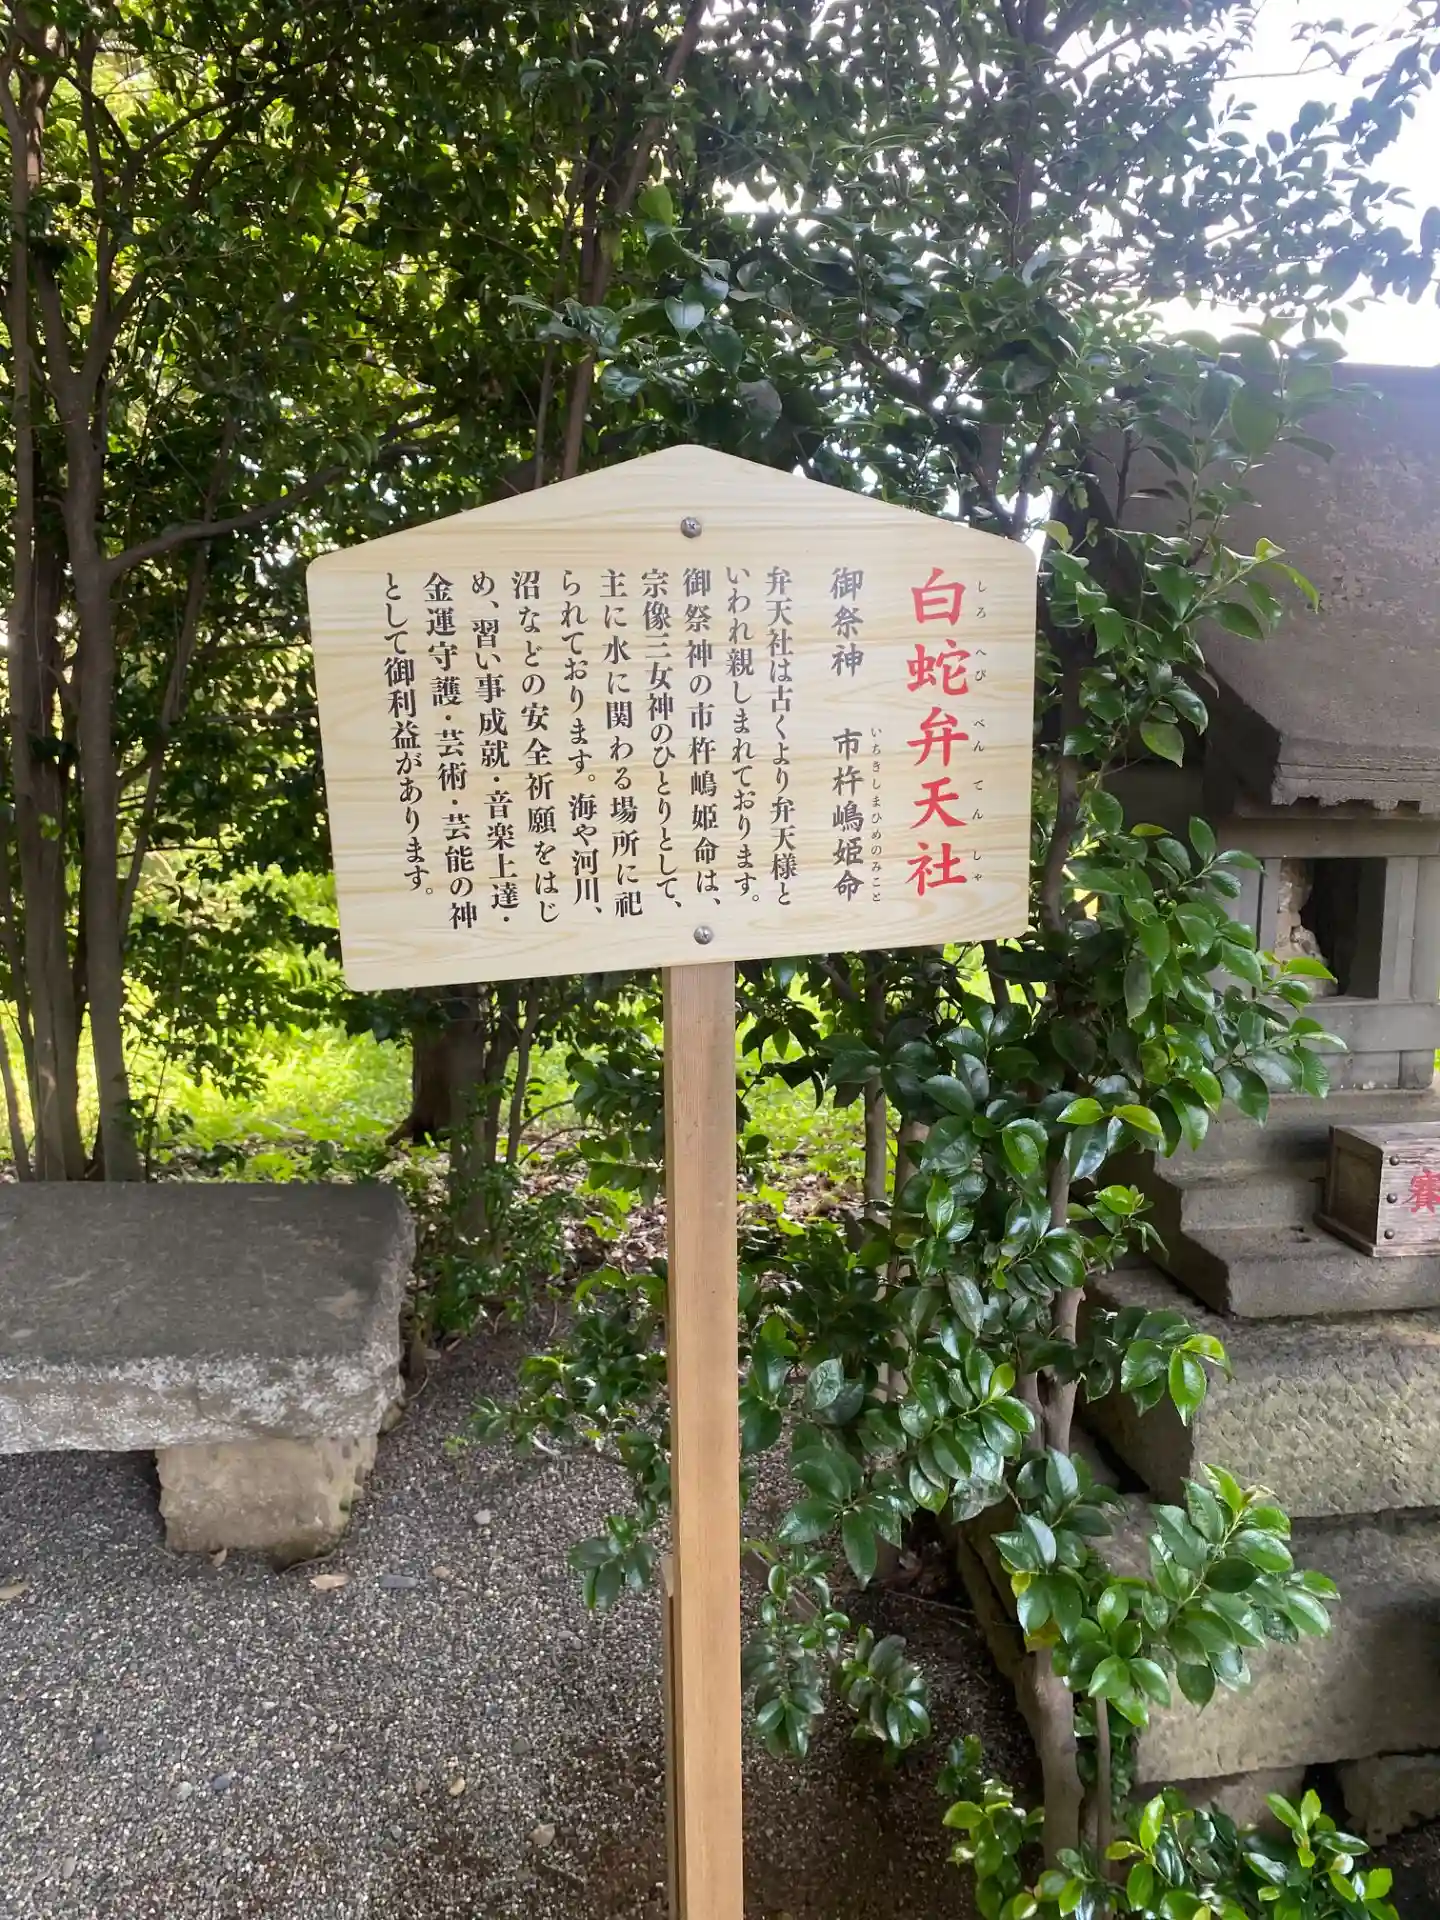 白蛇弁天社
しろへびべんてんしゃ
御祭神 市杵嶋姫命
いちきしまひめのみこと
弁天社は古くより弁天様と
いわれ親しまれております。
御祭神の市杵嶋姫命は、
宗像三女神のひとりとして、
主に水に関わる場所に祀
られております。海や河川、
沼などの安全祈願をはじ
め、習い事成就・音楽上達・
金運守護・芸術・芸能の神
として御利益があります。
賽